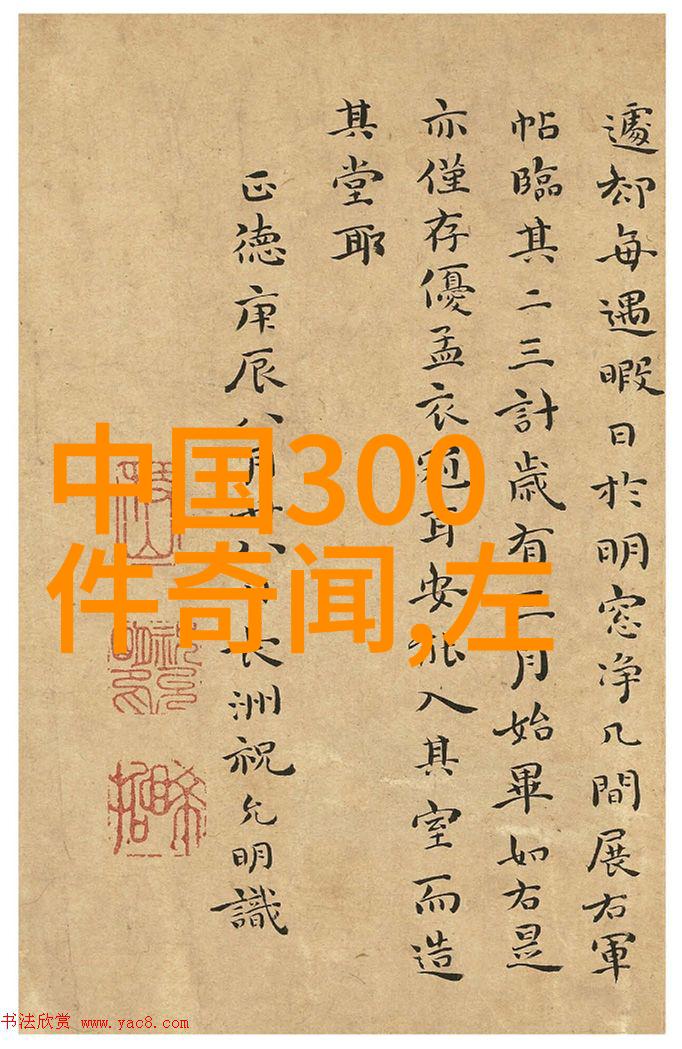 遽却每遇暇日於明窓净几間展右軍
帖臨其二三計歲有月始畢如右是
亦僅存優孟衣冠耳安能入其室而造
其堂耶
正德庚辰八月十八日長洲祝允明識
中国300
件奇闻,左
书法欣赏 www.yac8.com